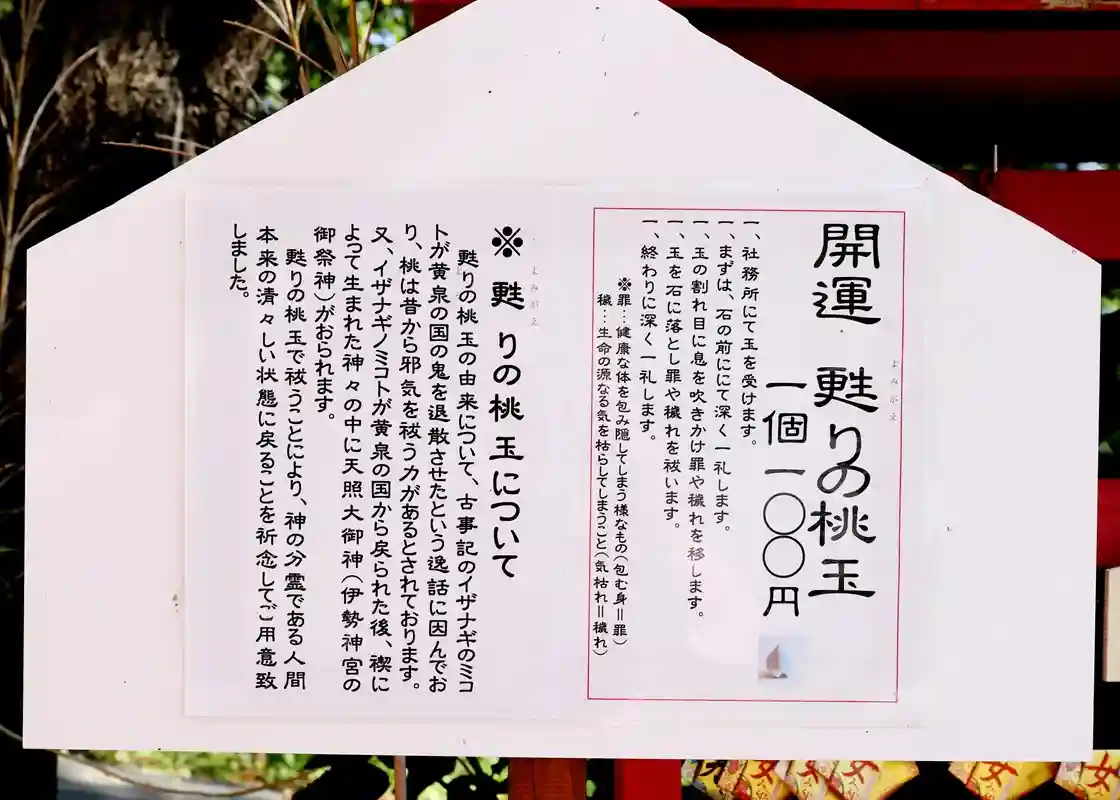 開運 甦りの桃玉
よみがえ
一個一〇〇円
一、社務所にて玉を受けます。
一、まずは、石の前ににて深く一礼します。
一、玉の割れ目に息を吹きかけ罪や穢れを移します。
一、玉を石に落とし罪や穢れを祓います。
一、終わりに深く一礼します。
※罪…健康な体を包み隠してしまう様なもの(包む身=罪)
穢…生命の源なる気を枯らしてしまうこと(気枯れ=穢れ)
※甦りの桃玉について
よみがえ
甦りの桃玉の由来について、古事記のイザナギのミコ
トが黄泉の国の鬼を退散させたという逸話に因んでお
り、桃は昔から邪気を祓う力があるとされております。
又、イザナギノミコトが黄泉の国から戻られた後、禊に
よって生まれた神々の中に天照大御神(伊勢神宮の
御祭神)がおられます。
甦りの桃玉で祓うことにより、神の分霊である人間
本来の清々しい状態に戻ることを祈念してご用意致
しました。
女
女
女
女